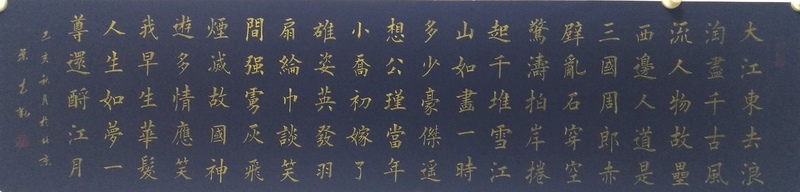 大江東去浪
淘盡千古風
流人物故壘
西邊人道是
三國周郎赤
壁亂石穿空
驚濤拍岸捲
起千堆雪江
山如畫一時
多少豪傑遙
想公瑾當年
小喬初嫁了
雄姿英發羽
扇綸巾談笑
間强虜灰飛
煙滅故國神
遊多情應笑
我早生華髮
人生如夢一
尊還酹江月
己亥秋月於北京